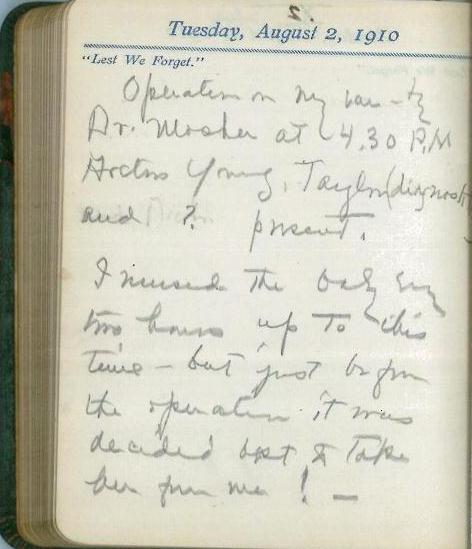 Tuesday, August 2, 1910
"Lest We Forget."
Operation on my ear - by
Dr. Mosher at 4.30 P.M
Doctors Young, Taylor (diagnost
and ? present.
I nursed the baby every
two hours up to this
time - but just before
the operation it was
decided best to take
her from me! -